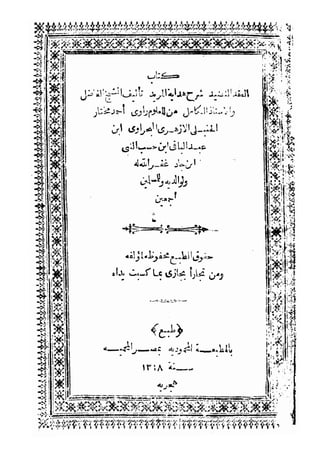 كتاب
العقد النضيد شرح هداية المريد تأليف الشيخ الفاضل
والاستاذ الكامل من للعلوم راوى أحمد مختار
الحنبلى الازهرى البحراوى ابن
عبد الباقى ابن حسب النبى
ابن جاد غفر الله له
ولوالديه والمسلمين
أجمعين
حقوق الطبع محفوظة لمؤلفه
ومن تجارأ يجازى بما كسبت يداه
﴿طبع﴾
بالمطبعة المحمودية بمصر المحميه
سنة ١٣٠٨
هجريه